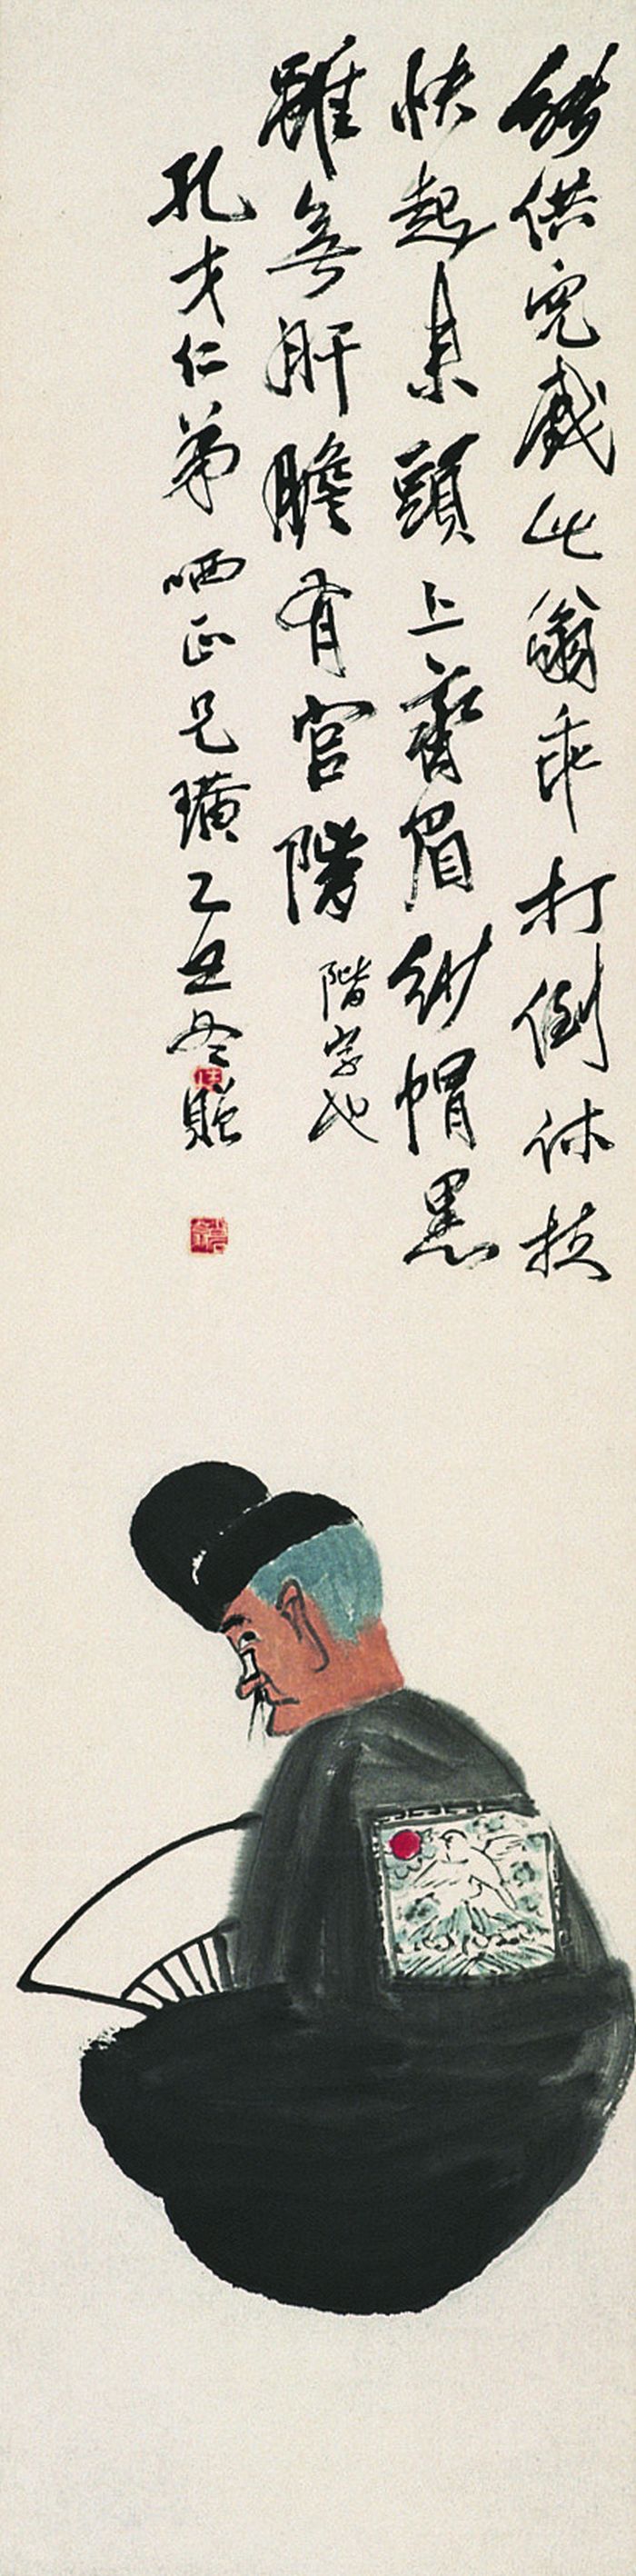 能供兒戲此翁乖打倒休扶
快起來頭上齊眉紗帽黑
雖無肝膽有官階
階字也
孔才仁弟哂正兄璜乙丑冬贈